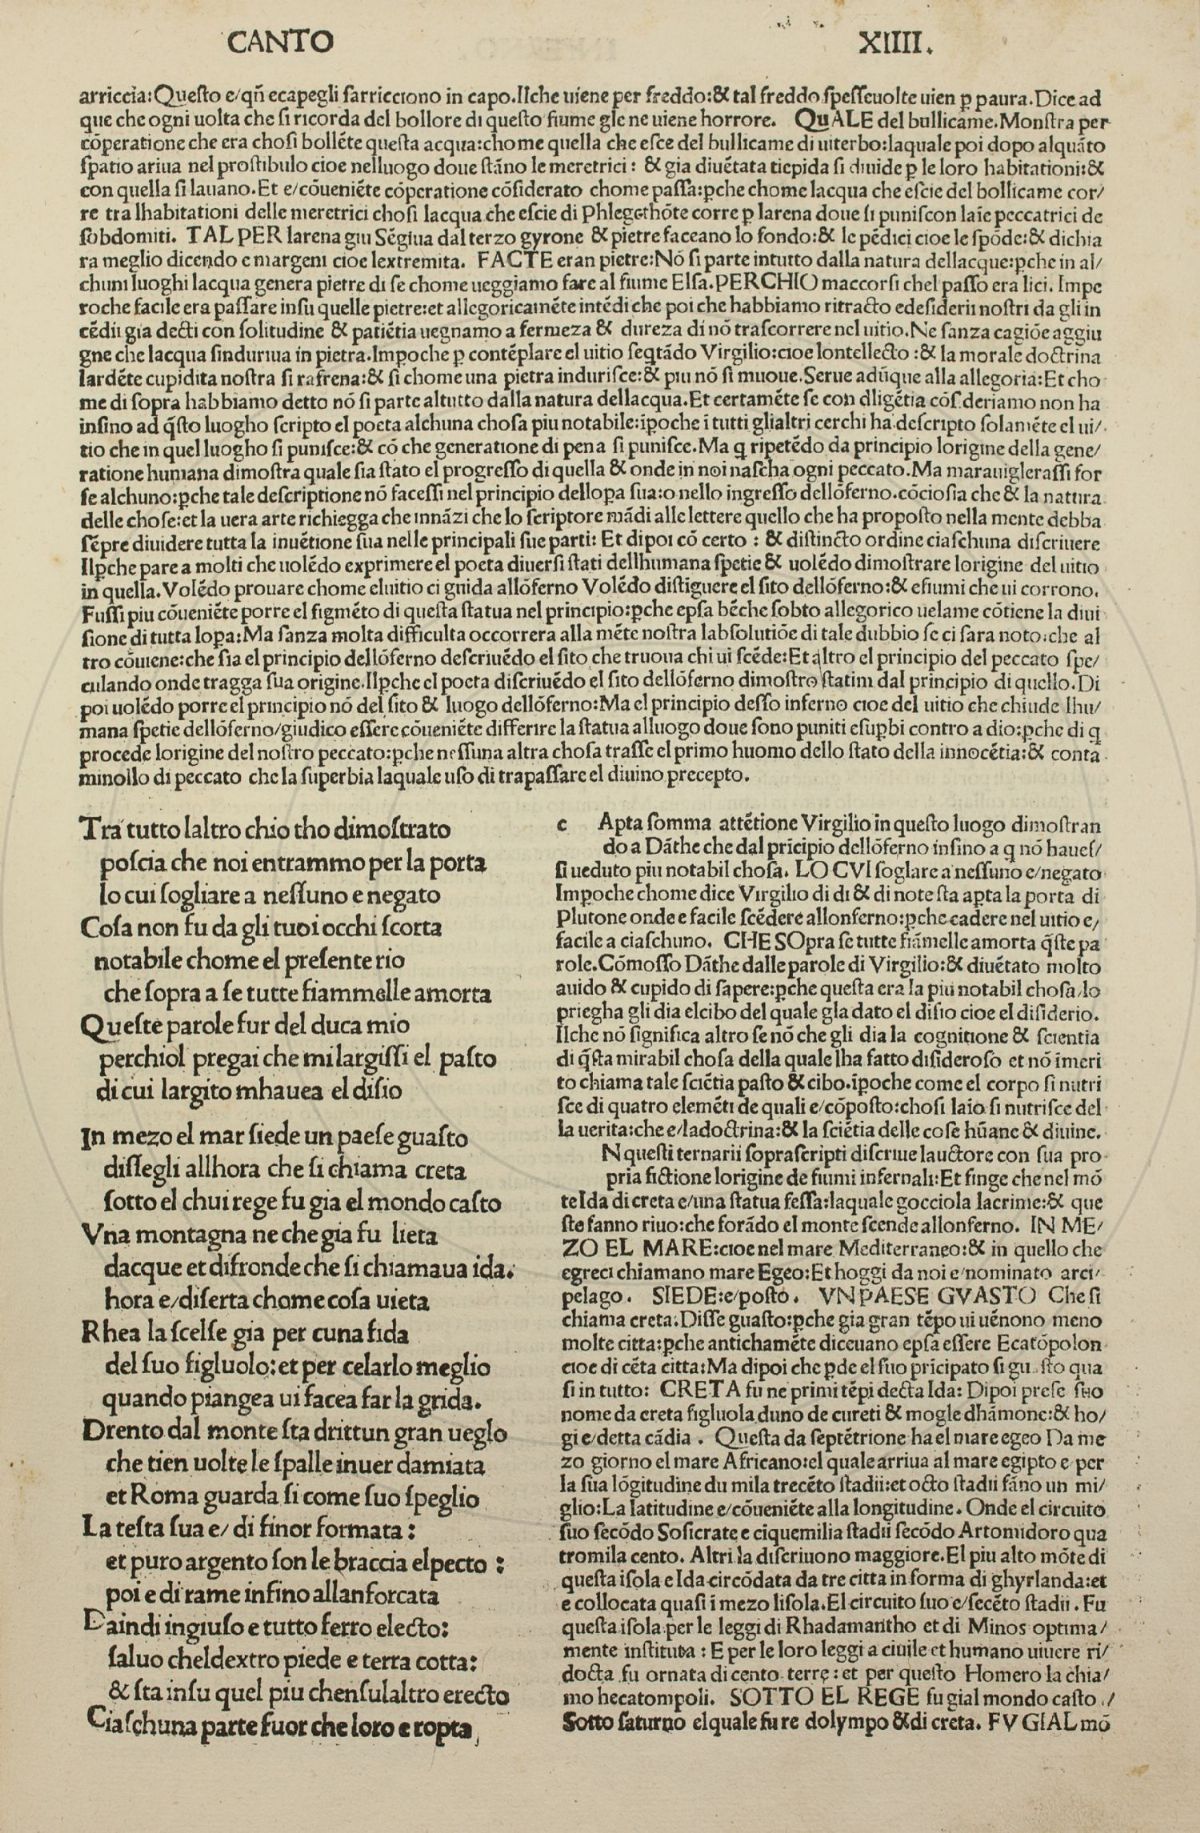 CANTO XIIII.
arriccia:Questo e/qn̄ ecapegli sarricciono in capo.Ilche uiene per freddo:& tal freddo spesseuolte uien ꝑ paura.Dice ad
que che ogni uolta che si ricorda del bollore di questo fiume gle ne uiene horrore. QuALE del bullicame.Monstra per
cōperatione che era chosi bollēte questa acqua:chome quella che esce del bullicame di uiterbo:laquale poi dopo alquāto
spatio ariua nel prostibulo cioe nelluogo doue stāno le meretrici: & gia diuētata tiepida si diuide ꝑ le loro habitationi:&
con quella si lauano.Et e/cōueniēte cōperatione cōsiderato chome passa:ꝑche chome lacqua che escie del bollicame cor/
re tra lhabitationi delle meretrici chosi lacqua che escie di Phlegethōte corre ꝑ larena doue si puniscon laie peccatrici de
sobdomiti. TAL PER larena giu Sēgiua dal terzo gyrone & pietre faceano lo fondo:& le pēdici cioe le spōde:& dichia
ra meglio dicendo e margeni cioe lextremita. FACTE eran pietre:Nō si parte intutto dalla natura dellacque:ꝑche in al/
chuni luoghi lacqua genera pietre di se chome ueggiamo fare al fiume Elsa.PERCHIO maccorsi chel passo era lici. Impe
roche facile era passare insu quelle pietre:et allegoricamēte intēdi che poi che habbiamo ritracto edesiderii nostri da gli in
cēdii gia decti con solitudine & patiētia uegnamo a fermeza & dureza di nō trascorrere nel uitio.Ne sanza cagiōe aggiu
gne che lacqua sinduriua in pietra.Impoche ꝑ contēplare el uitio seqtādo Virgilio:cioe lontellecto :& la morale doctrina
lardēte cupidita nostra si rafrena:& si chome una pietra indurisce:& piu nō si muoue.Serue adūque alla allegoria:Et cho
me di sopra habbiamo detto nō si parte altutto dalla natura dellacqua.Et certamēte se con dligētia cōsideriamo non ha
insino ad q̄sto luogho scripto el poeta alchuna chosa piu notabile:īpoche ī tutti glialtri cerchi ha descripto solamēte el ui/
tio che in quel luogho si punisce:& cō che generatione di pena si punisce.Ma q ripetēdo da principio lorigine della gene/
ratione humana dimostra quale sia stato el progresso di quella & onde in noi nascha ogni peccato.Ma marauiglerassi for
se alchuno:ꝑche tale descriptione nō facessi nel principio dellopa sua:o nello ingresso dellōferno.cōciosia che & la natura
delle chose:et la uera arte richiegga che innāzi che lo scriptore mādi alle lettere quello che ha proposto nella mente debba
sēpre diuidere tutta la inuētione sua nelle principali sue parti: Et dipoi cō certo : & distincto ordine ciaschuna discriuere
Ilꝑche pare a molti che uolēdo exprimere el poeta diuersi stati dellhumana spetie & uolēdo dimostrare lorigine del uitio
in quella.Volēdo prouare chome eluitio ci guida allōferno Volēdo distiguere el sito dellōferno:& efiumi che ui corrono.
Fussi piu cōueniēte porre el figmēto di questa statua nel principio:ꝑche epsa bēche sobto allegorico uelame cōtiene la diui
sione di tutta lopa:Ma sanza molta difficulta occorrera alla mēte nostra labsolutiōe di tale dubbio se ci sara noto:che al
tro cōuiene:che sia el principio dellōferno descriuēdo el sito che truoua chi ui scēde:Et altro el principio del peccato spe/
culando onde tragga sua origine.Ilꝑche el poeta discriuēdo el sito dellōferno dimostro statim dal principio di quello.Di
poi uolēdo porre el principio nō del sito & luogo dellōferno:Ma el principio desso inferno cioe del uitio che chiude lhu/
mana spetie dellōferno/giudico essere cōueniēte differire la statua alluogo doue sono puniti esuꝑbi contro a dio:ꝑche di q
procede lorigine del nostro peccato:ꝑche nessuna altra chosa trasse el primo huomo dello stato della innocētia:& conta
minollo di peccato che la superbia laquale uso di trapassare el diuino precepto.
Tra tutto laltro chio tho dimostrato
poscia che noi entrammo per la porta
lo cui sogliare a nessuno e negato
Cosa non fu da gli tuoi occhi scorta
notabile chome el presente rio
che sopra a se tutte fiammelle amorta
Queste parole fur del duca mio
perchiol pregai che milargissi el pasto
di cui largito mhauea el disio
In mezo el mar siede un paese guasto
dissegli allhora che si chiama creta
sotto el chui rege fu gia el mondo casto
Vna montagna ne che gia fu lieta
dacque et difronde che si chiamaua ida.
hora e/diserta chome cosa uieta
Rhea la scelse gia per cuna fida
del suo figluolo:et per celarlo meglio
quando piangea ui facea far la grida.
Drento dal monte sta drittun gran ueglo
che tien uolte le spalle inuer damiata
et Roma guarda si come suo speglio
La testa sua e/ di finor formata :
et puro argento son le braccia elpecto :
poi e di rame infino allanforcata
Daindi ingiuso e tutto ferro electo:
saluo cheldextro piede e terra cotta:
& sta insu quel piu chensulaltro erecto
Ciaschuna parte fuor che loro e ropta
c Apta somma attētione Virgilio in questo luogo dimostran
do a Dāthe che dal pricipio dellōferno insino a q nō haues/
si ueduto piu notabil chosa. LO CVI soglare a nessuno e/negato
Impoche chome dice Virgilio di di & di note sta apta la porta di
Plutone onde e facile scēdere allonferno:ꝑche cadere nel uitio e/
facile a ciaschuno. CHE SOpra se tutte fiāmelle amorta q̄ste pa
role.Cōmosso Dāthe dalle parole di Virgilio:& diuētato molto
auido & cupido di sapere:ꝑche questa era la piu notabil chosa/lo
priegha gli dia elcibo del quale gla dato el disio cioe el disiderio.
Ilche nō significa altro se nō che gli dia la cognitione & scientia
di q̄sta mirabil chosa della quale lha fatto disideroso et nō īmeri
to chiama tale sciētia pasto & cibo.īpoche come el corpo si nutri
sce di quatro elemēti de quali e/cōposto:chosi laio si nutrisce del
la uerita:che e/ladoctrina:& la sciētia delle cose hūane & diuine.
N questi ternarii soprascripti discriue lauctore con sua pro
pria fictione lorigine de fiumi infernali:Et finge che nel mō
te Ida di creta e/una statua fessa:laquale gocciola lacrime:& que
ste fanno riuo:che forādo el monte scende allonferno. IN ME/
ZO EL MARE:cioe nel mare Mediterraneo:& in quello che
egreci chiamano mare Egeo:Et hoggi da noi e/nominato arci/
pelago. SIEDE:e/posto. VN PAESE GVASTO Che si
chiama creta.Disse guasto:ꝑche gia gran tēpo ui uēnono meno
molte citta:ꝑche antichamēte diceuano epsa essere Ecatōpolon
cioe di cēta citta:Ma dipoi che ꝑde el suo pricipato si gu sto qua
si in tutto: CRETA fu ne primi tēpi decta Ida: Dipoi prese suo
nome da creta figluola duno de cureti & mogle dhāmone:& ho/
gi e/detta cādia . Questa da septētrione ha el mare egeo Da me
zo giorno el mare Africano:el quale arriua al mare egipto e per
la sua lōgitudine du mila trecēto stadii:et octo stadii fāno un mi/
glio:La latitudine e/cōueniēte alla longitudine. Onde el circuito
suo secōdo Sosicrate e ciquemilia stadii secōdo Artomidoro qua
tromila cento. Altri la discriuono maggiore.El piu alto mōte di
questa isola e Ida circōdata da tre citta in forma di ghyrlanda:et
e collocata quasi ī mezo lisola.El circuito suo e/secēto stadii . Fu
questa isola per le leggi di Rhadamantho et di Minos optima/
mente instituta : E per le loro leggi a ciuile et humano uiuere ri/
docta fu ornata di cento terre : et per questo Homero la chia/
mo hecatompoli. SOTTO EL REGE fu gial mondo casto ./
Sotto saturno elquale fu re dolympo & di creta. FV GIAL mō